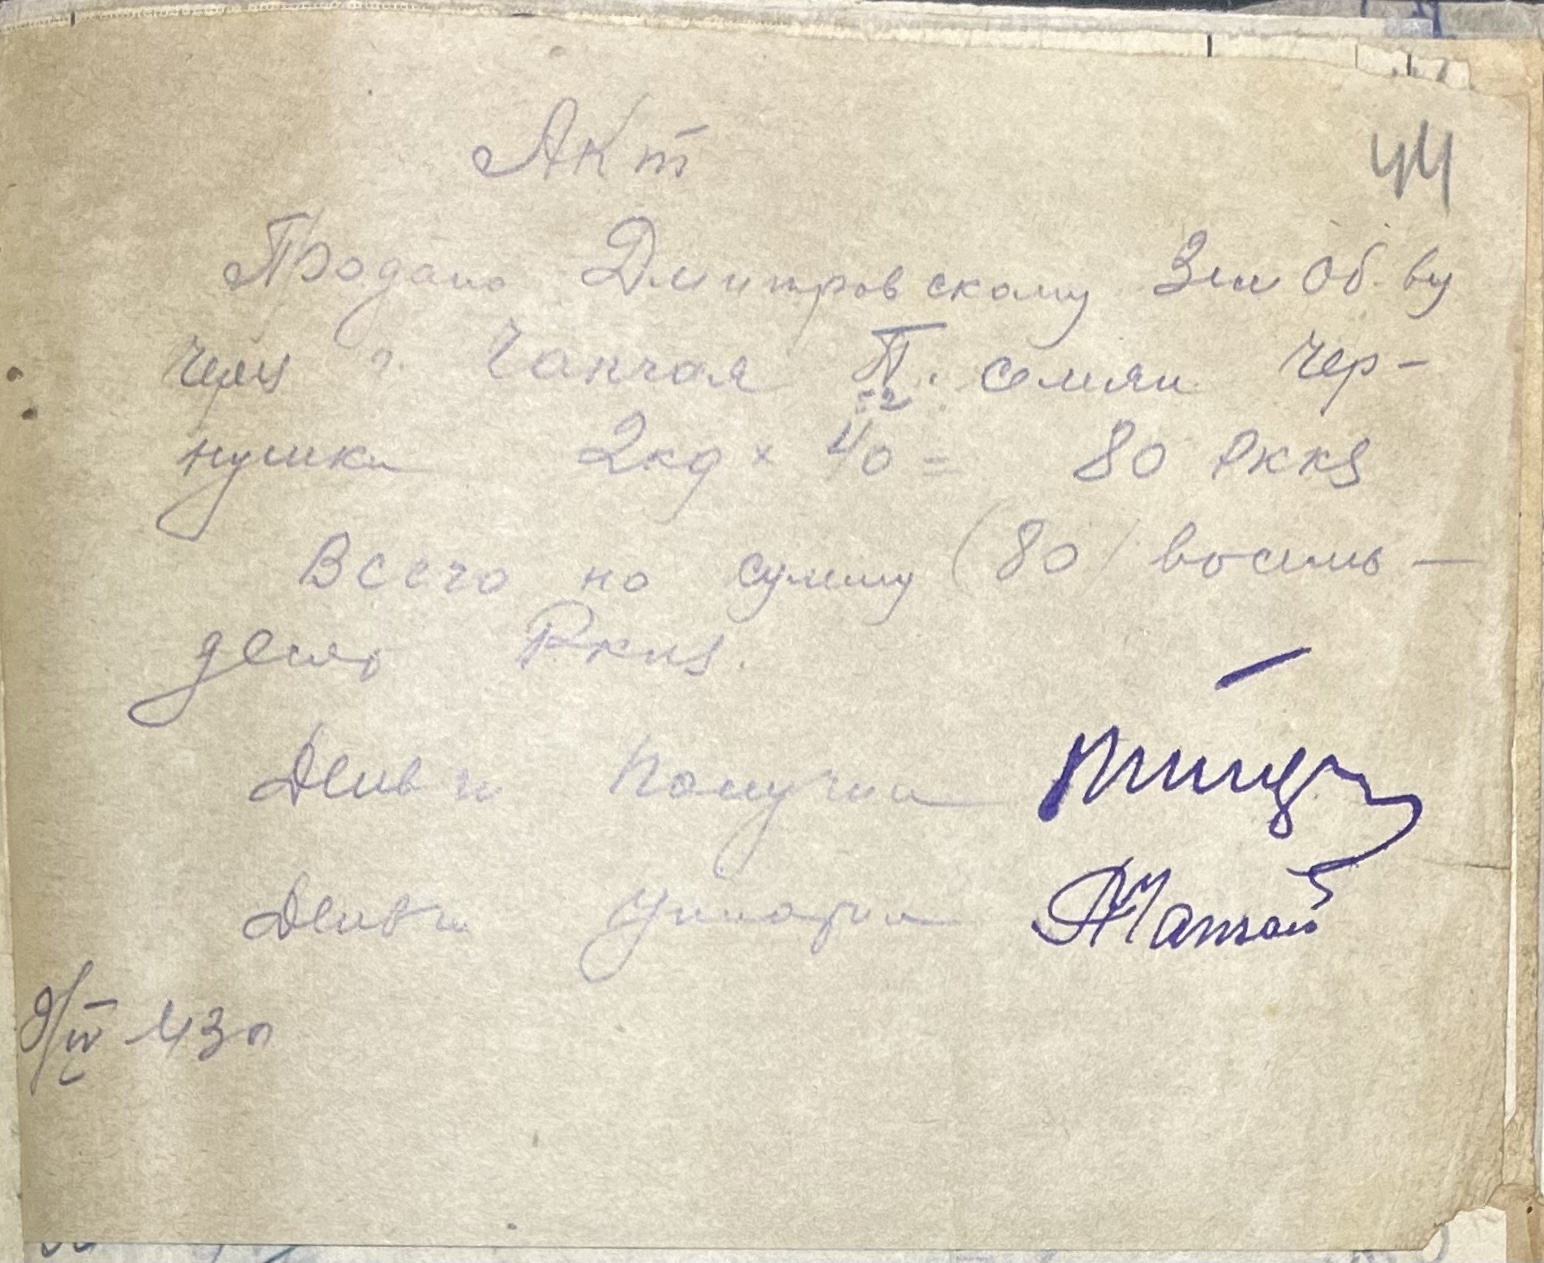 44
Акт
Продано Дмитровскому Зем Об. ву
через г. Чапчая П. семян Чер-
нушки 2кг × 40 = 80 Ркк
Всего на сумму (80) восемь-
десят Ркк.
Деньги Получил
Деньги Уплотил Чапчай
9/IV 43 г